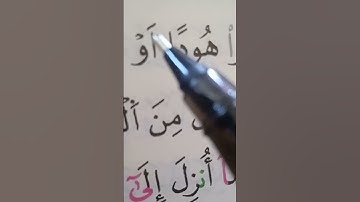 هُودًا أَوۡ
مِنَ ٱلۡ
أُنزِلَ إِلَىٰٓ